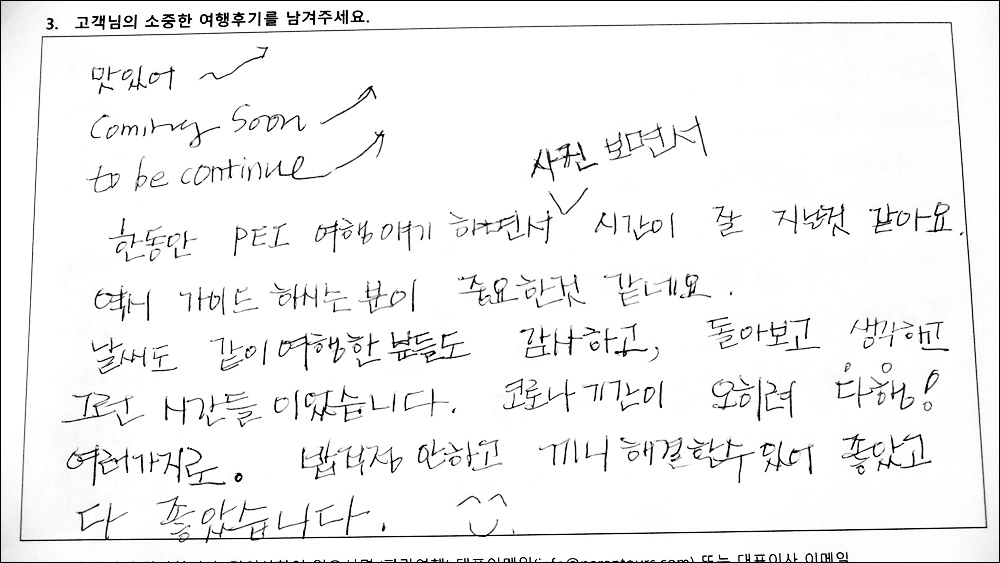 3. 고객님의 소중한 여행후기를 남겨주세요.
맛있어
Coming Soon
to be continue
사진 보면서
한동안 PEI 여행얘기 하면서 시간이 잘 지난것 같아요.
역시 가이드 하시는 분이 중요한것 같네요.
날씨도 같이 여행한 분들도 감사하고, 돌아보고 생각하고
그런 시간들이었습니다. 코로나 기간이 오히려 다행!
여러가지로. 밥걱정 안하고 끼니 해결할수 있어 좋았고
다 좋았습니다.
대표이메일(info@parantours.com) 또는 대표이사 이메일